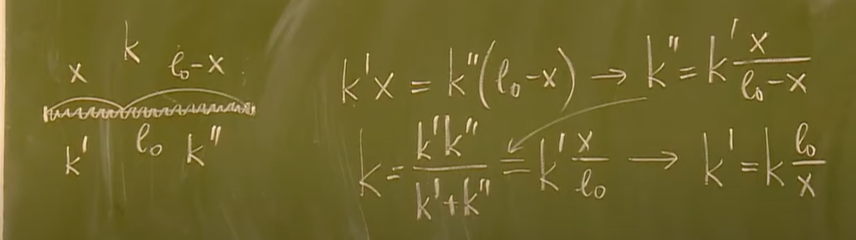 k
x l₀-x
k' l₀ k"
k'x = k"(l₀-x) → k" = k' x/(l₀-x)
k = k'k"/(k'+k") = k' x/l₀ → k' = k l₀/x